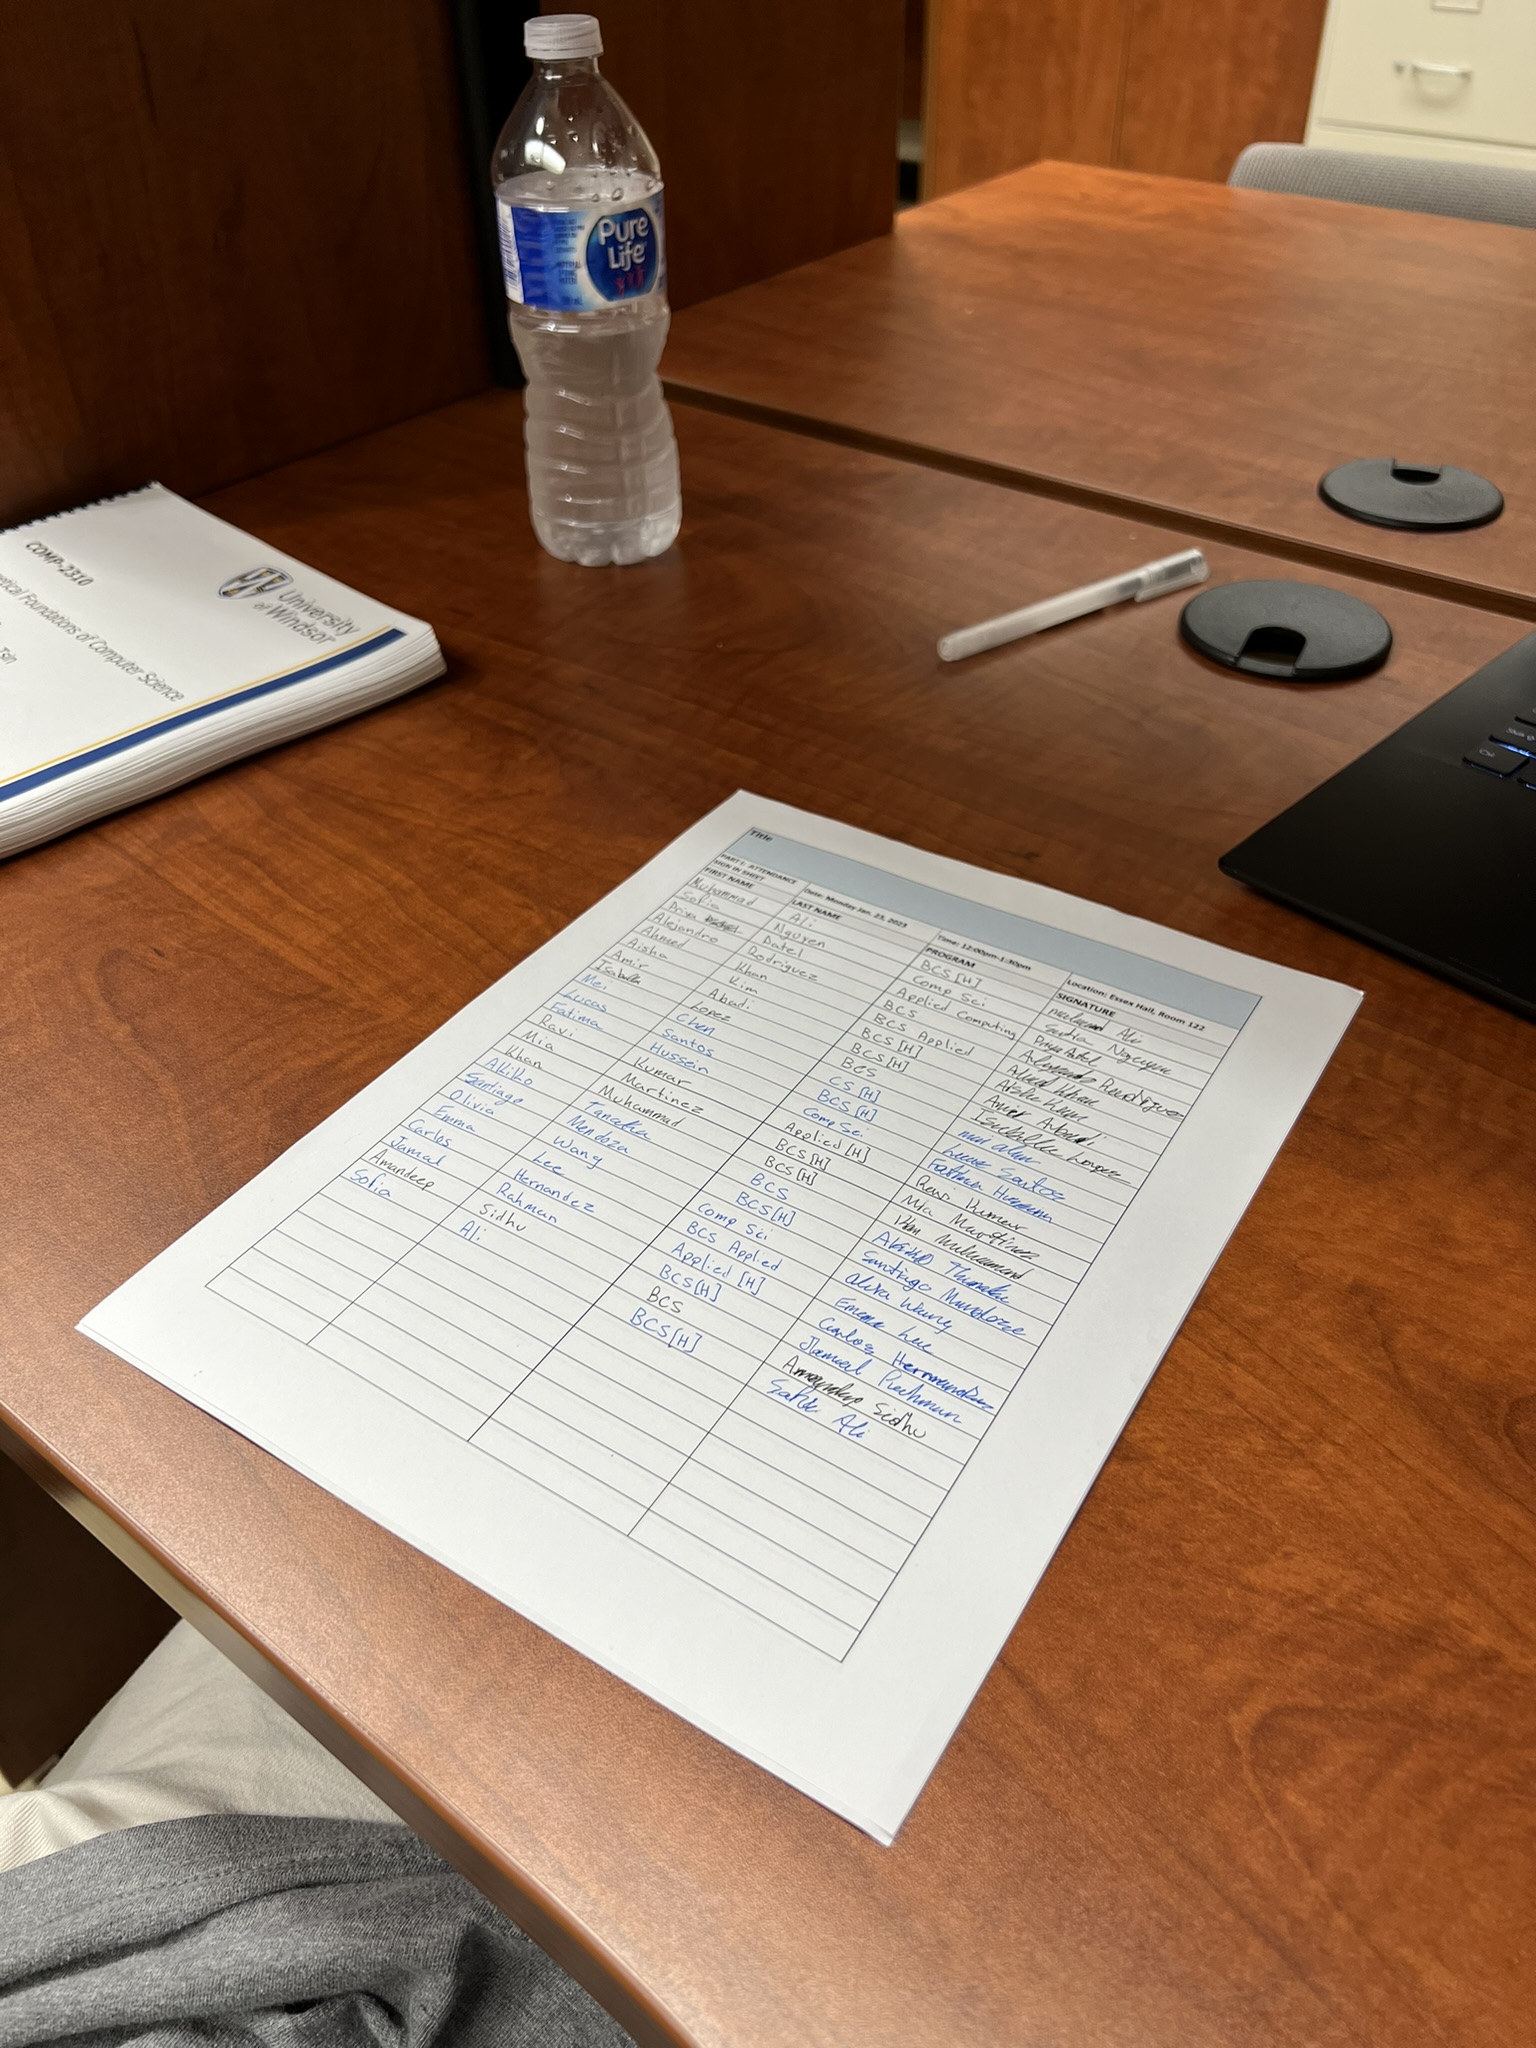 Pure
Life
COMP-2310
University
of Windsor
Foundations of Computer Science
Tsin
Title
PART I: ATTENDANCE SIGN IN SHEET Date: Monday Jan. 23, 2023 Time: 12:00pm-1:30pm Location: Essex Hall, Room 122
FIRST NAME LAST NAME PROGRAM SIGNATURE
Muhammad Ali BCS [H] Ali
Sofia Nguyen Comp Sci Sofia Nguyen
Priya Patel Applied Computing Priya Patel
Alejandro Rodriguez BCS Alejandro Rodriguez
Ahmed Khan BCS Applied Ahmed Khan
Aisha Kim BCS [H] Aisha Kim
Amir Abadi BCS [H] Amir Abadi
Isabella Lopez BCS Isabella Lopez
Mei Chen CS [H] Mei Chen
Lucas Santos BCS [H] Lucas Santos
Fatima Hussein Comp Sci Fatima Hussein
Ravi Kumar Applied [H] Ravi Kumar
Mia Martinez BCS [H] Mia Martinez
Khan Muhammad BCS [H] Khan Muhammad
Akiko Tanaka BCS Akiko Tanaka
Santiago Mendoza BCS [H] Santiago Mendoza
Olivia Wang Comp Sci Olivia Wang
Emma Lee BCS Applied Emma Lee
Carlos Hernandez Applied [H] Carlos Hernandez
Jamal Rahman BCS[H] Jamal Rahman
Amandeep Sidhu BCS Amandeep Sidhu
Sofia Ali BCS[H] Sofia Ali